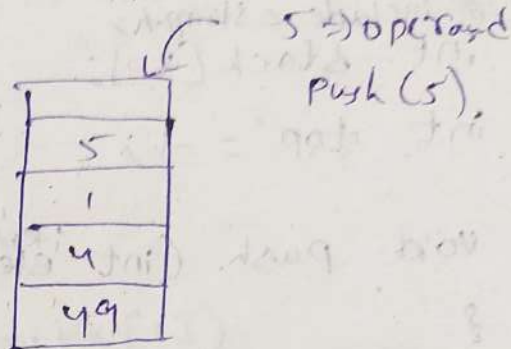 5 => operand
push (5).
5
1
4
49